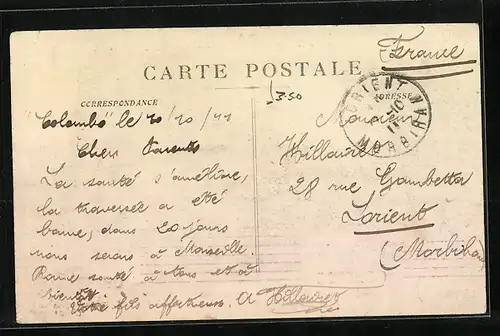 France
CARTE POSTALE
CORRESPONDANCE
3.50
ADRESSE
"Colombo" le 10/10/11
Chers Parents
La santé s'améliore,
la traversée a été
bonne, dans 20 jours
nous serons à Marseille.
Bonne santé à tous et à
bientôt
Votre fils affectueux. A Hillaire
Monsieur
Hillaire
28 rue Gambetta
Lorient
(Morbihan)
LORIENT
MORBIHAN